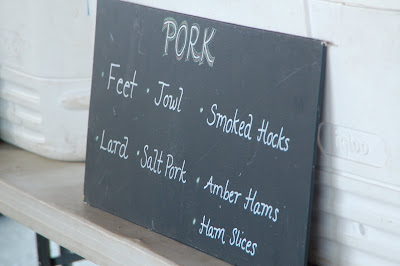 PORK
· Feet · Jowl · Smoked Hocks
· Lard · Salt Pork · Amber Hams
· Ham Slices
Igloo